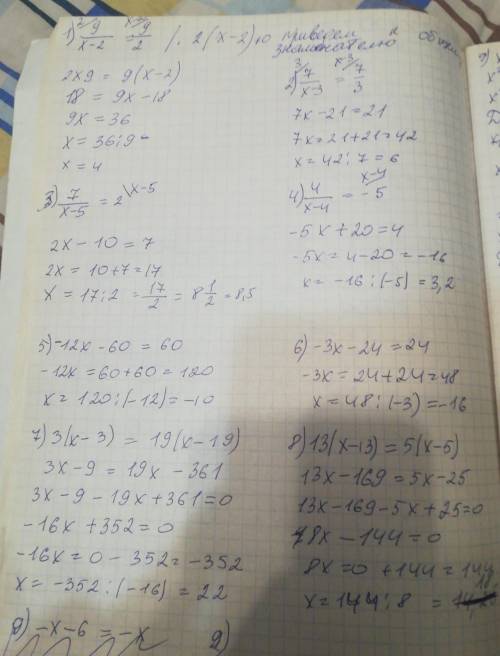 1) 9/x-2 9/2 /· 2(x-2)≠0 приведем к общему
знаменателю
2x9 = 9(x-2)
18 = 9x-18
9x = 36
x = 36:9
x = 4
2) 7/x-3 = 7/3
7x-21=21
7x=21+21=42
x=42:7=6
3) 7/x-5 = 2 \x-5
2x-10=7
2x=10+7=17
x=17:2=17/2=8 1/2=8,5
4) 4/x-4 = -5
-5x+20=4
-5x=4-20=-16
x=-16:(-5)=3,2
5) -12x-60=60
-12x=60+60=120
x=120:(-12)=-10
6) -3x-24=24
-3x=24+24=48
x=48:(-3)=-16
7) 3(x-3) = 19(x-19)
3x-9=19x-361
3x-9-19x+361=0
-16x+352=0
-16x=0-352=-352
x=-352:(-16)=22
8) 13(x-13)=5(x-5)
13x-169=5x-25
13x-169-5x+25=0
8x-144=0
8x=0+144=144
x=144:8=18
9) -x-6=-x
9)